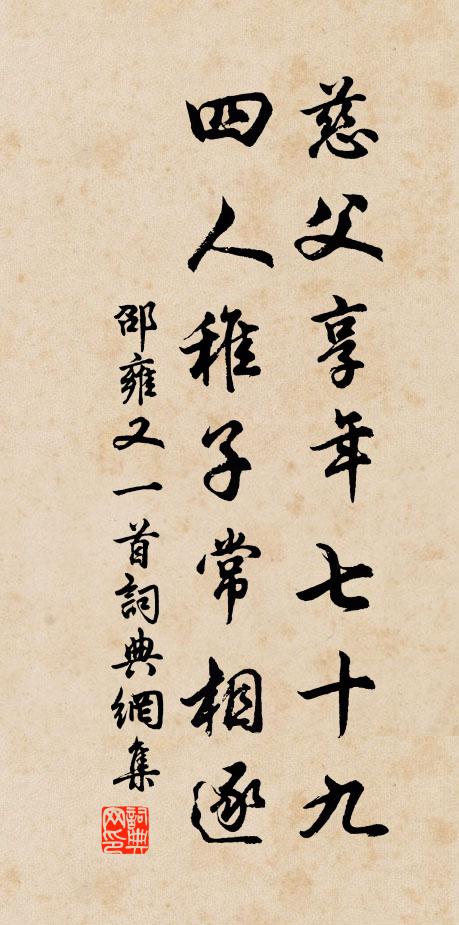 慈父享年七十九
四人稚子常相逐
邵雍又一首詞典網集
詞典網印